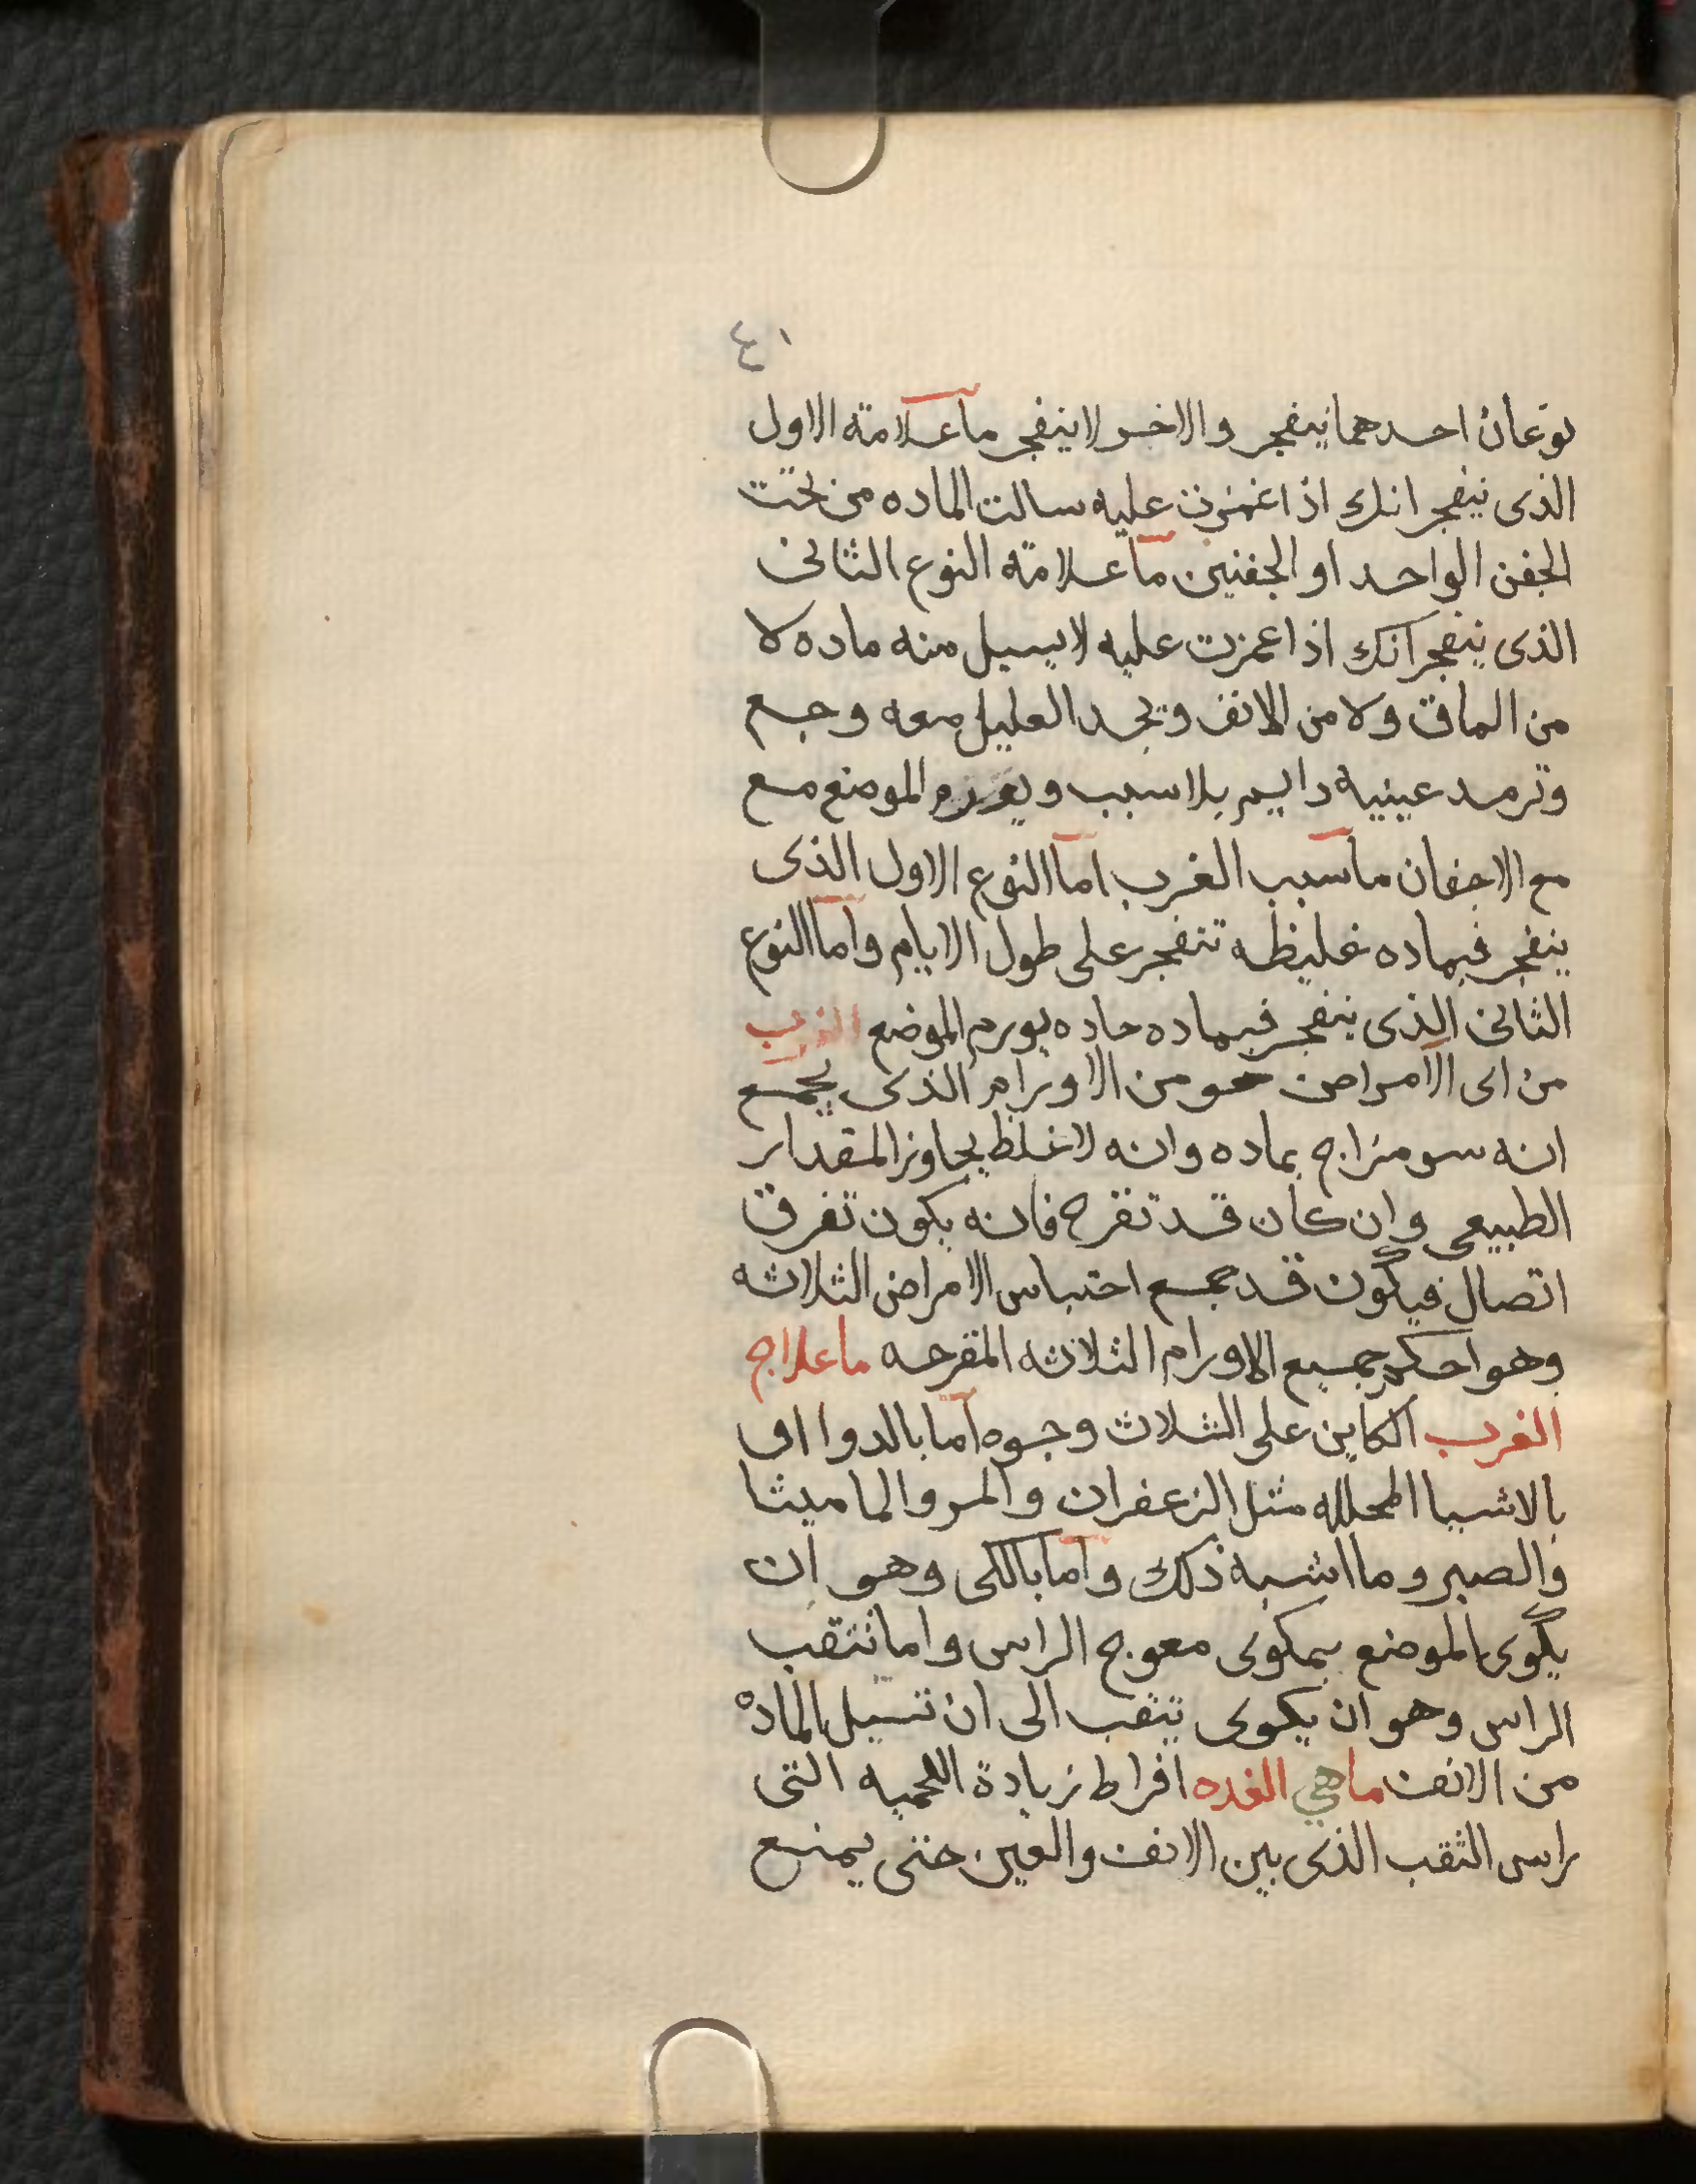 ٤١
نوعان احدهما ينفجر والاخر لا ينفجر ما علامة الاول
الذى ينفجر انك اذا غمزت عليه سالت الماده من تحت
الجفن الواحد او الجفنين ما علامة النوع الثانى
الذى ينفجر انك اذا عمزت عليه لا يسيل منه ماده لا
من الماق ولا من الانف ويجد العليل معه وجع
وترمد عينيه دايم بلا سبب الموضع مع
مع الاجفان ما سبب الغرب اما النوع الاول الذى
ينفجر فبماده غليظه تنفجر على طول الايام واما النوع
الثانى الذى ينفجر فبماده حاده يورم الموضع الغرب
من اى الامراض هو من الاورام الذى يجمع
انه سو مزاج بماده وانه لاغلظ يجاوز المقدار
الطبيعى وان كان قد تقرح فانه يكون تفرق
اتصال فيكون قد جمع احتباس الامراض الثلاثه
وهو احكم جميع الاورام الثلاثه المقرحه ما علاج
الغرب الكاين على الثلاث وجوه اما بالدوا او
بالاشيا المحلله مثل الزعفران والمر والماميثا
والصبر وما اشبه ذلك واما بالكى وهو ان
يكوى الموضع بمكوى معوج الراس واما نتقب
الراس وهو ان يكوى يتقب الى ان تسيل الماده
من الانف ما هي الغده افراط زيادة اللحميه التى
راس الثقب الذى بين الانف والعين حتى يمنع